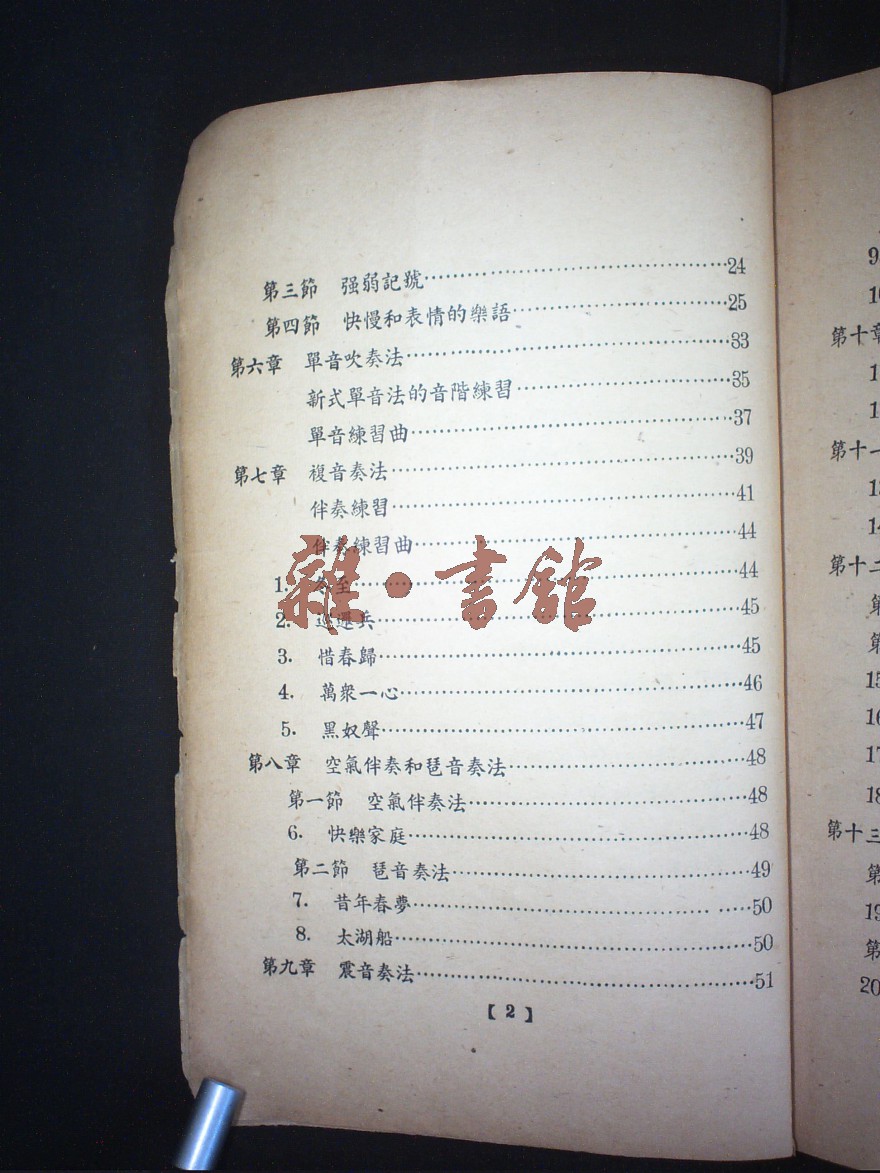 第三節 強弱記號…24
第四節 快慢和表情的樂語…25
第六章 單音吹奏法…33
新式單音法的音階練習…35
單音練習曲…37
第七章 複音奏法…39
伴奏練習…41
伴奏練習曲…44
1. 冬至…44
2. 巡邏兵…45
3. 惜春歸…45
4. 萬衆一心…46
5. 黑奴聲…47
第八章 空氣伴奏和琶音奏法…48
第一節 空氣伴奏法…48
6. 快樂家庭…48
第二節 琶音奏法…49
7. 昔年春夢…50
8. 太湖船…50
第九章 震音奏法…51
【2】
雜·書館
9
10
第十章
1
1
第十一
13
14
第十二
第
第
15
16
17
18
第十三
第
19
第
20